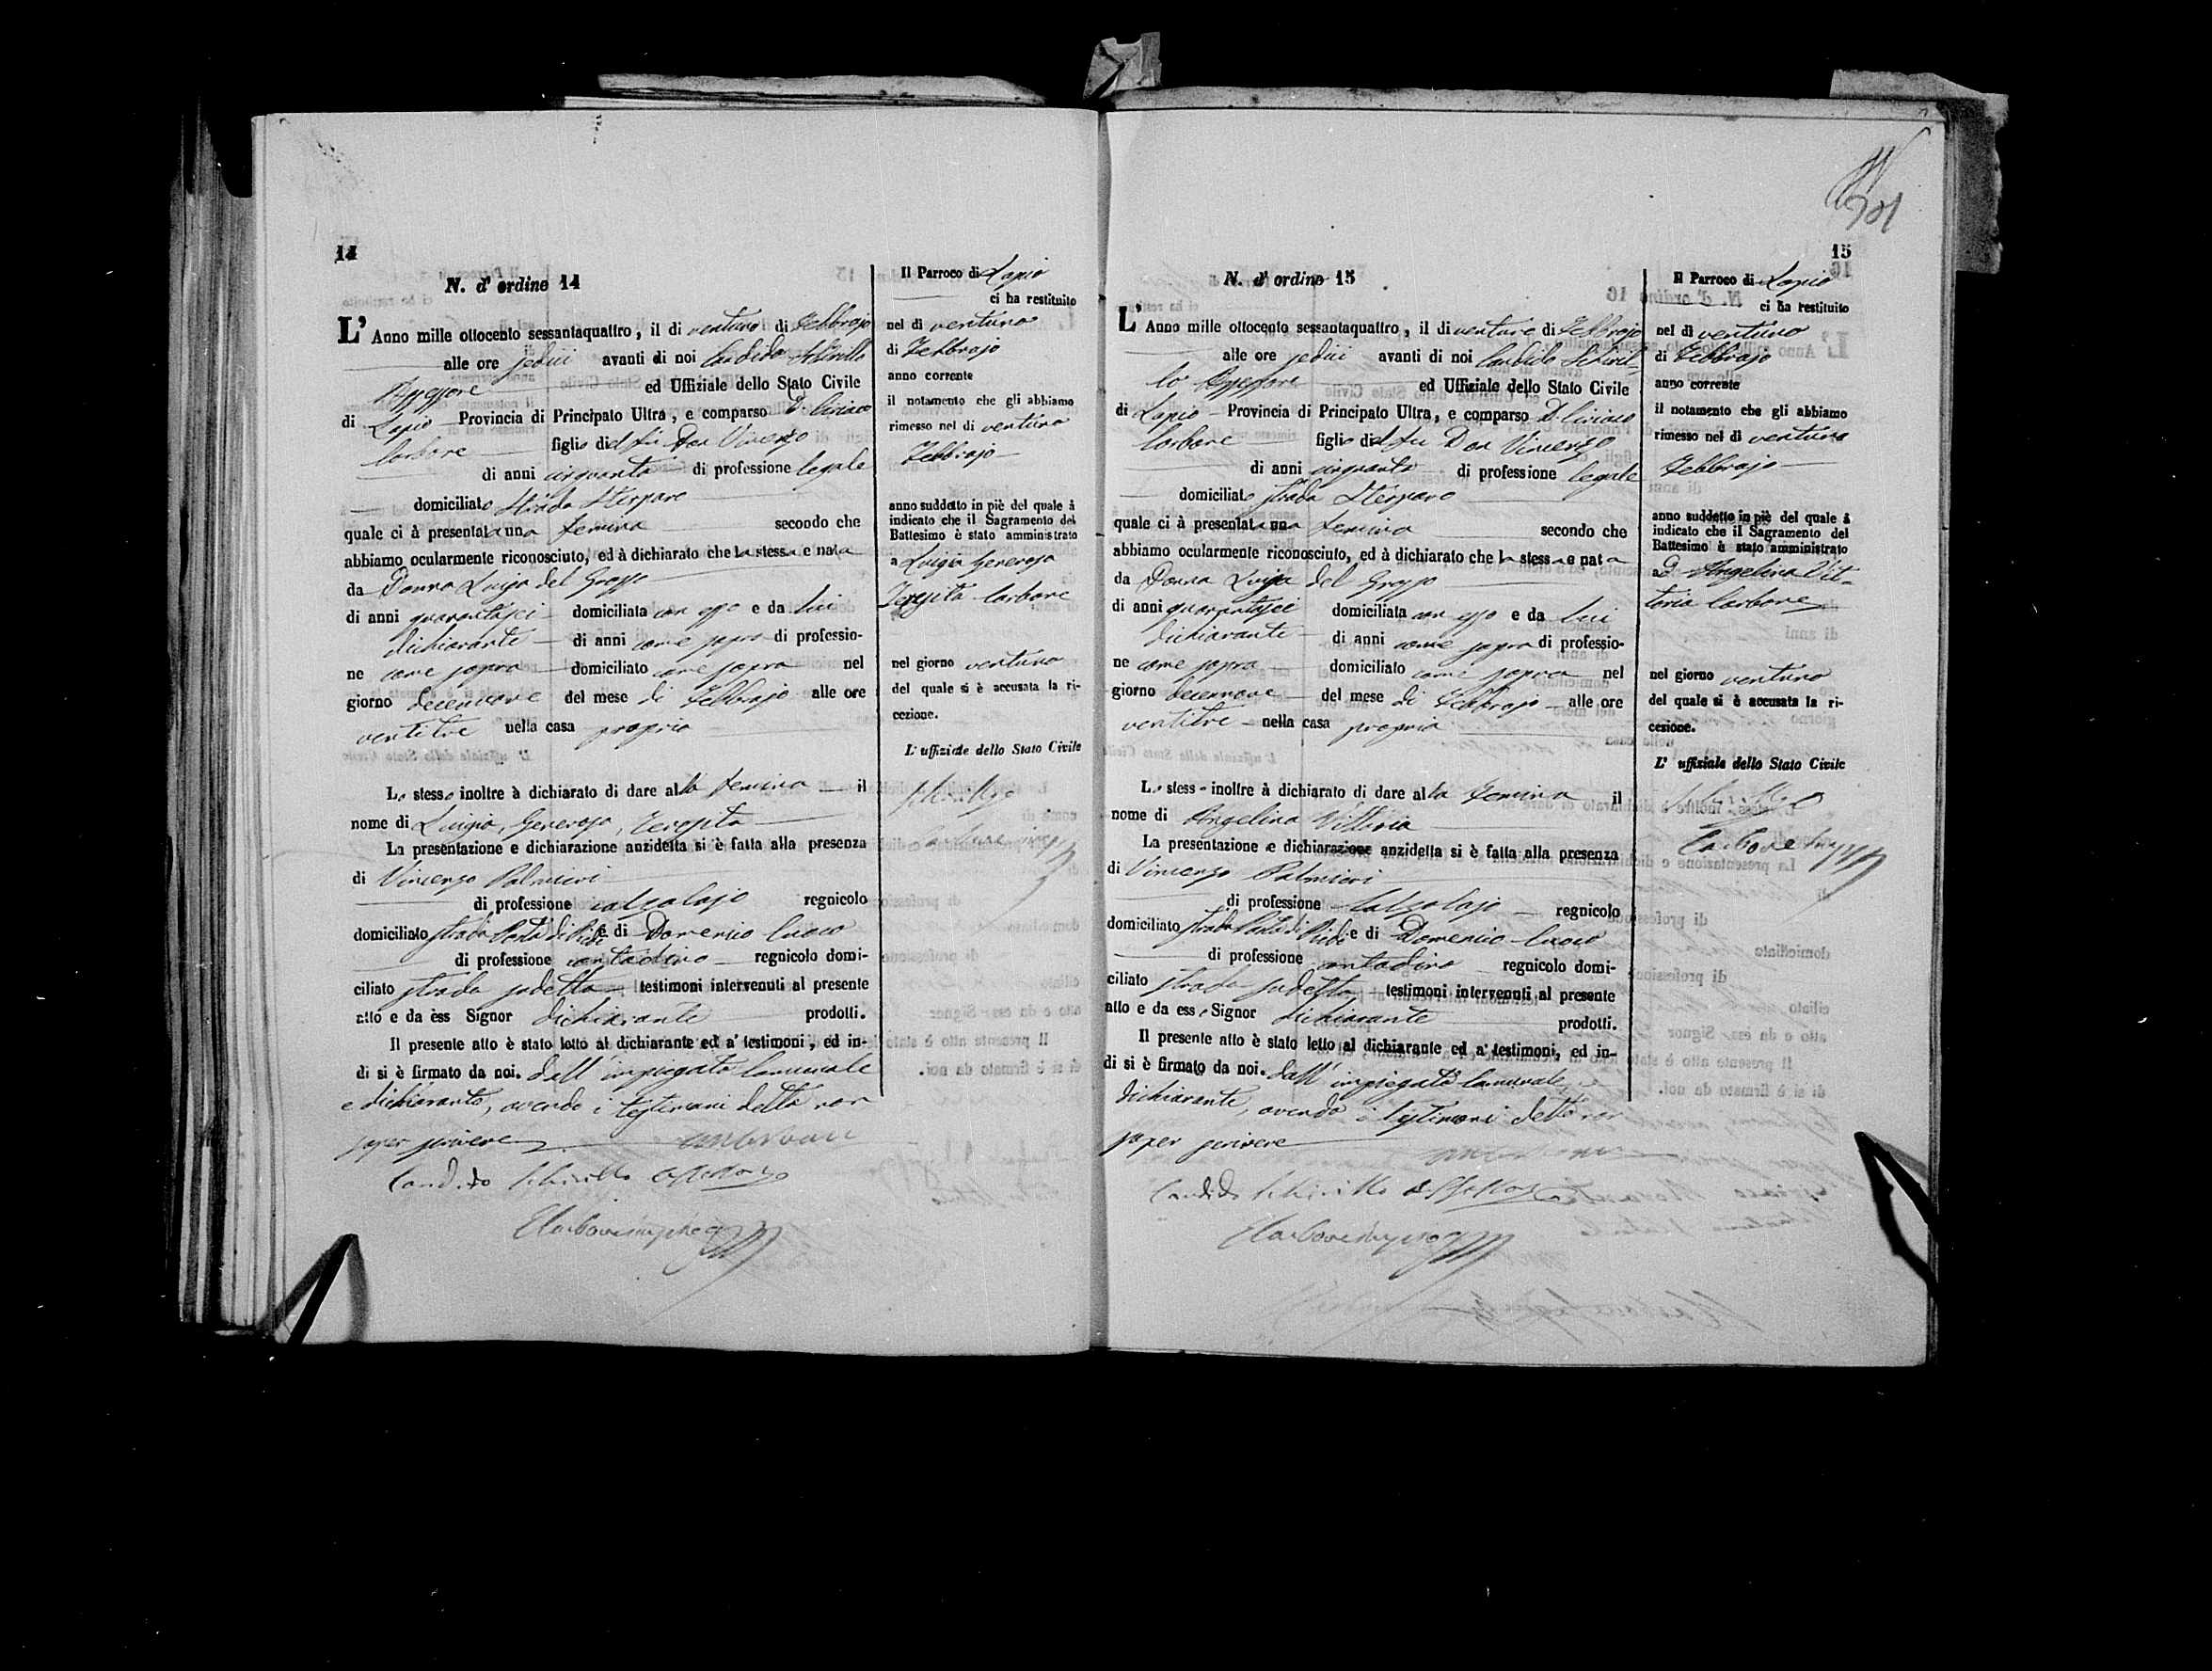 14
N. d' ordine 14
L' Anno mille ottocento sessantaquattro, il di ventuno di Febbrajo
alle ore sedici avanti di noi Candido Schirillo
Assessore ed Uffiziale dello Stato Civile
di Lapio Provincia di Principato Ultra, e comparso D. Ciriaco
Carbone figlio del fu Don Vincenzo
di anni cinquanta di professione legale
domiciliato Strada
quale ci à presentata una femina secondo che
abbiamo ocularmente riconosciuto, ed à dichiarato che la stessa e nata
da Donna Luisa del Grosso
di anni quarantasei domiciliata con esso e da lui
dichiarante di anni come sopra di professio-
ne come sopra domiciliato come sopra nel
giorno diecennove del mese di Febbrajo alle ore
ventitre nella casa propria
Lo stesso inoltre à dichiarato di dare alla femina il
nome di Luigia, Generosa, Teresita
La presentazione e dichiarazione anzidetta si è fatta alla presenza
di Vincenzo Palmieri
di professione calzolajo regnicolo
domiciliato strada Porta di Piedi e di Domenico
di professione contadino regnicolo domi-
ciliato strada sudetta testimoni intervenuti al presente
atto e da ess Signor dichiarante prodotti.
Il presente atto è stato letto al dichiarante ed a' testimoni, ed in-
di si è firmato da noi. dall' impiegato Comunale
e dichiarante, avendo i testimoni detto non
saper scrivere
Candido Schirillo Assessore
Il Parroco di Lapio
ci ha restituito
nel di ventuno
di Febbrajo
anno corrente
il notamento che gli abbiamo
rimesso nel di ventuno
Febbrajo
anno suddetto in piè del quale á
indicato che il Sagramento del
Battesimo è stato amministrato
a Luigia Generosa
Teresita Carbone
nel giorno ventuno
del quale si è accusata la ri-
cezione.
L' uffiziale dello Stato Civile
Schirillo
Carbone
15
N. d' ordine 15
L' Anno mille ottocento sessantaquattro, il di ventuno di Febbrajo
alle ore sedici avanti di noi Candido Schiril-
lo Assessore ed Uffiziale dello Stato Civile
di Lapio Provincia di Principato Ultra, e comparso D. Ciriaco
Carbone figlio del fu Don Vincenzo
di anni cinquanta di professione legale
domiciliato strada
quale ci à presentata una femina secondo che
abbiamo ocularmente riconosciuto, ed à dichiarato che la stessa e nata
da Donna Luisa del Grosso
di anni quarantasei domiciliata con esso e da lui
dichiarante di anni come sopra di professio-
ne come sopra domiciliato come sopra nel
giorno diecennove del mese di Febbrajo alle ore
ventitre nella casa propria
Lo stesso inoltre à dichiarato di dare alla Femina il
nome di Angelina Vittoria
La presentazione e dichiarazione anzidetta si è fatta alla presenza
di Vincenzo Palmieri
di professione Calzolajo regnicolo
domiciliato strada Porta di Piedi e di Domenico
di professione contadino regnicolo domi-
ciliato strada sudetta testimoni intervenuti al presente
atto e da ess Signor dichiarante prodotti.
Il presente atto è stato letto al dichiarante ed a' testimoni, ed in-
di si è firmato da noi. dall' impiegato Comunale,
dichiarante, avendo i testimoni detto non
saper scrivere
Candido Schirillo Assessore
Il Parroco di Lapio
ci ha restituito
nel di ventuno
di Febbrajo
anno corrente
il notamento che gli abbiamo
rimesso nel di ventuno
Febbrajo
anno suddetto in piè del quale á
indicato che il Sagramento del
Battesimo è stato amministrato
ad Angelina Vit-
toria Carbone
nel giorno ventuno
del quale si è accusata la ri-
cezione.
L' uffiziale dello Stato Civile
Schirillo
Carbone